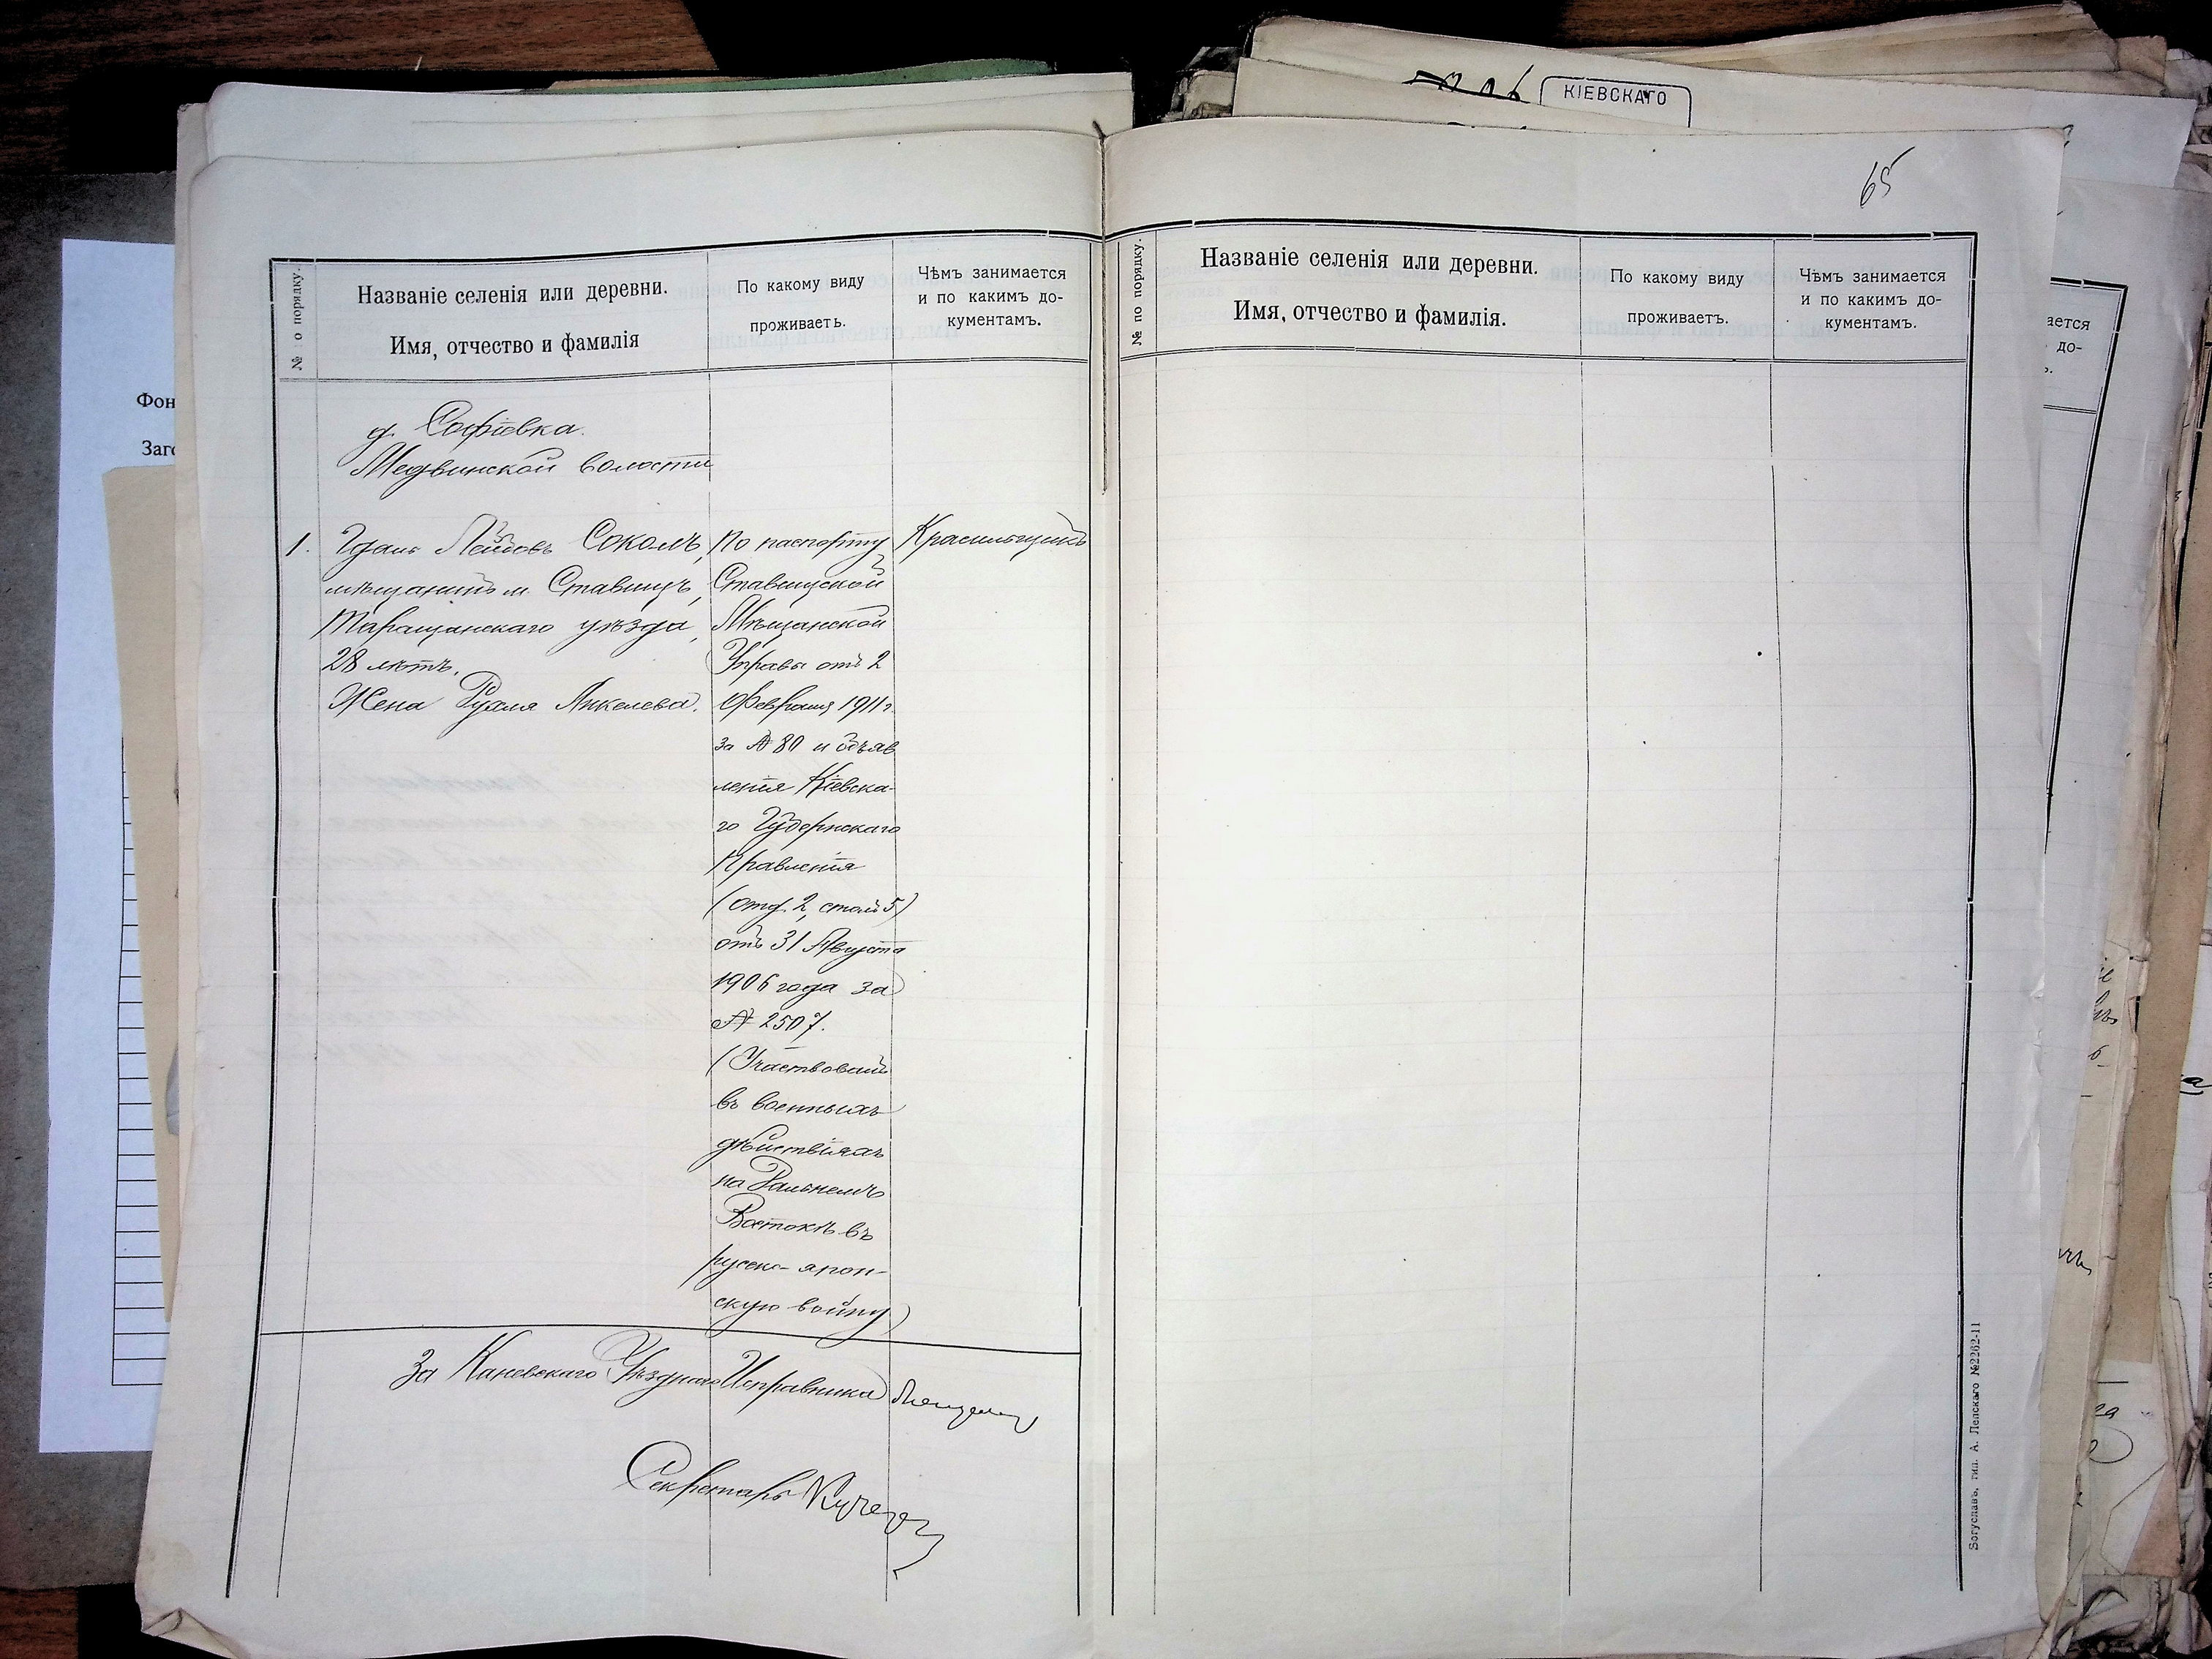 КІЕВСКАГО
65
Фон
Заго
№ по порядку.
Названіе селенія или деревни.
Имя, отчество и фамилія
По какому виду
проживаетъ.
Чѣмъ занимается
и по какимъ до-
кументамъ.
д. Софіевка.
Медвинской волости
1.
Лейбовъ Соколъ,
мѣщанинъ м. Ставищъ,
Таращанскаго уѣзда,
28 лѣтъ.
Жена Рухля Янкелева.
По паспорту
Ставищской
Мѣщанской
Управы отъ 2
Февраля 1911 г.
за № 80 и объяв
ленія Кіевска-
го Губернскаго
Правленія
(отд. 2, столъ 5)
отъ 31 Августа
1906 года за
№ 2507.
(Участвовалъ
въ военныхъ
дѣйствіяхъ
на Дальнемъ
Востокѣ въ
русско-япон-
скую войну)
Красильщикъ
За Каневскаго Уѣзднаго Исправника
Секретарь
№ по порядку.
Названіе селенія или деревни.
Имя, отчество и фамилія.
По какому виду
проживаетъ.
Чѣмъ занимается
и по какимъ до-
кументамъ.
Богуславъ, тип. А. Лепскаго №2262-11
ается
до-